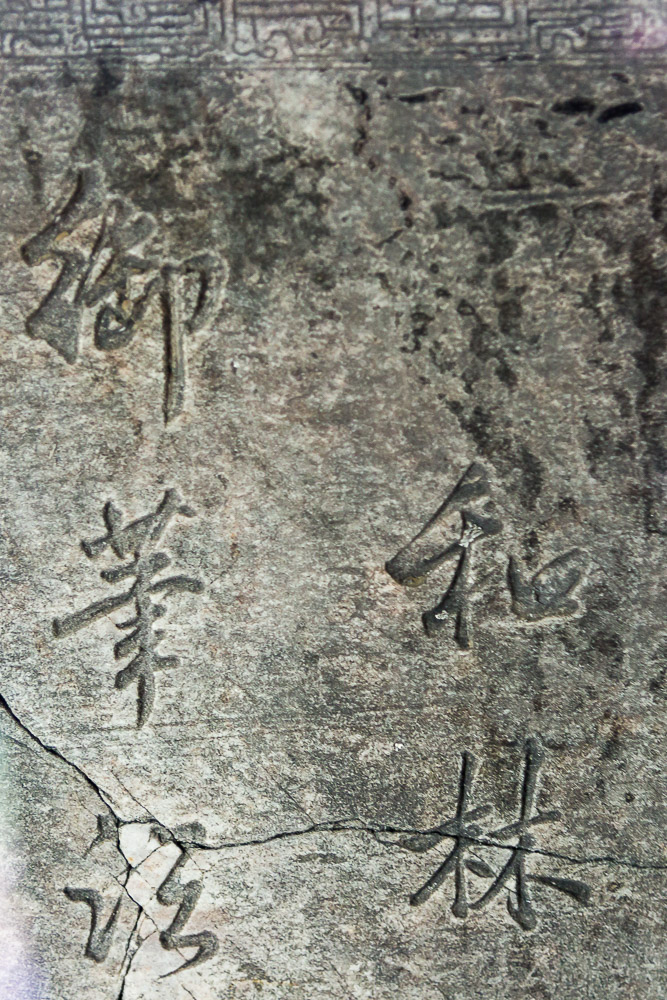 和林
御筆